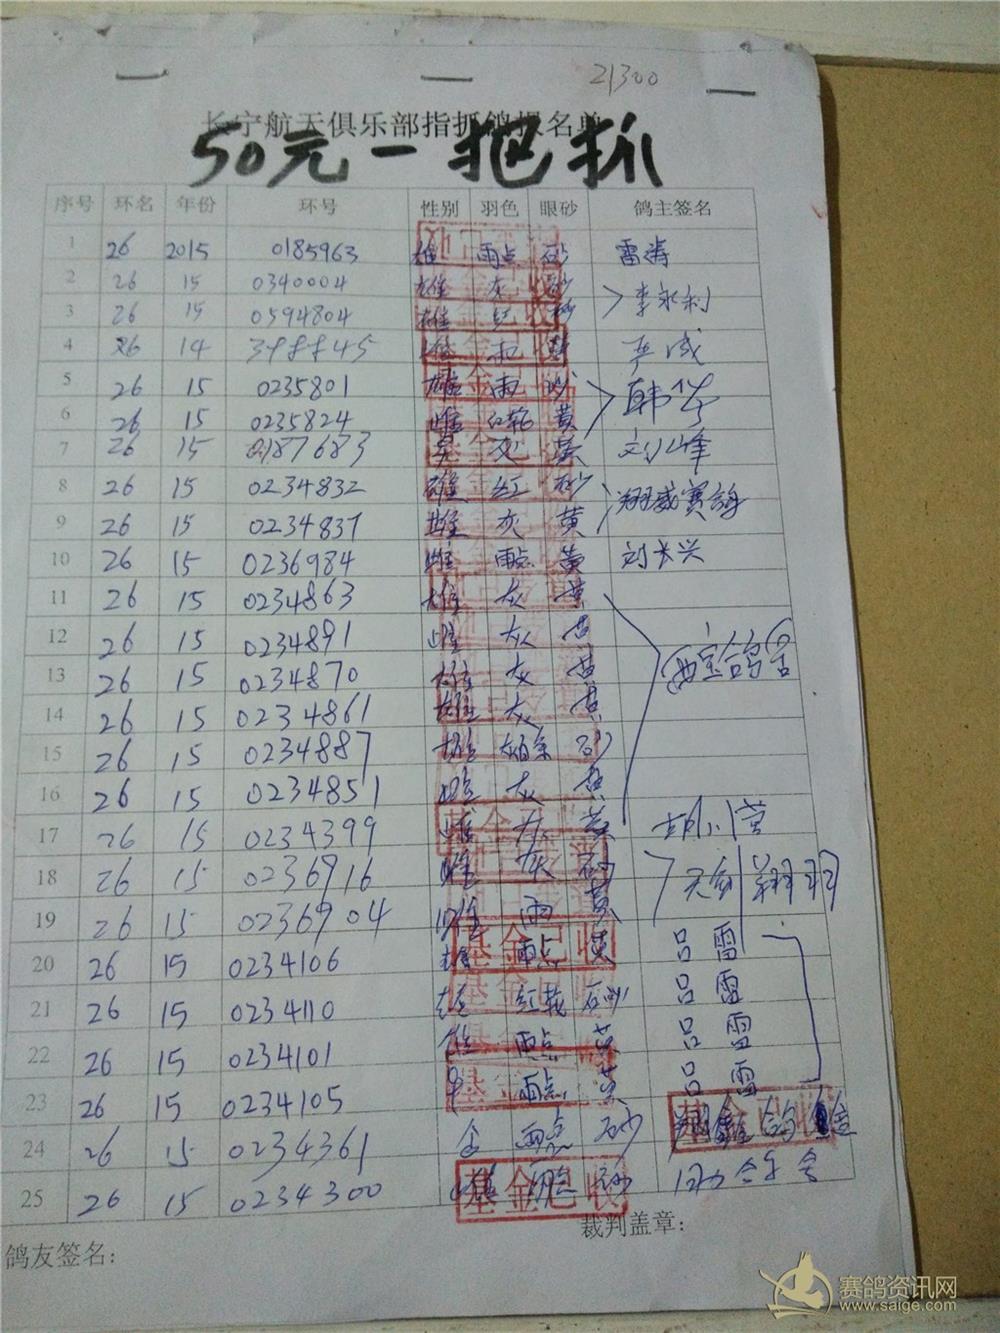 21300
长宁航天俱乐部指抓鸽报名单
50元一把抓
序号 环名 年份 环号 性别 羽色 眼砂 鸽主签名
1 26 2015 0185963 雄 雨点 砂 雷涛
2 26 15 0340004 雄 灰 砂 李永利
3 26 15 0594804 雄 红 砂
4 26 14 雨
5 26 15 0235801 雄 雨 砂 韩华
6 26 15 0235824 雌 红轮 黄
7 26 15 0187683 灰 黄 刘峰
8 26 15 0234832 雄 红 砂 翔威赛鸽
9 26 15 0234837 雌 灰 黄
10 26 15 0236984 雌 雨点 黄 刘长兴
11 26 15 0234863 雄 灰 黄
12 26 15 0234891 雌 灰 黄 西宝鸽舍
13 26 15 0234870 雄 灰 黄
14 26 15 0234861 雄 灰 黄
15 26 15 0234887 雄 砂
16 26 15 0234851 雌 灰 黄
17 26 15 0234399 雌 灰 黄 胡小营
18 26 15 0236916 雌 灰 砂 天剑翔羽
19 26 15 0236904 雌 雨 黄
20 26 15 0234106 雄 雨点 黄 吕雷
21 26 15 0234110 雄 红 砂 吕雷
22 26 15 0234101 雄 雨点 黄 吕雷
23 26 15 0234105 雨点 黄 吕雷
24 26 15 0234361 雨点 砂
25 26 15 0234300 雨点 砂
基金已收
鸽友签名：
裁判盖章：
赛鸽资讯网
www.saige.com